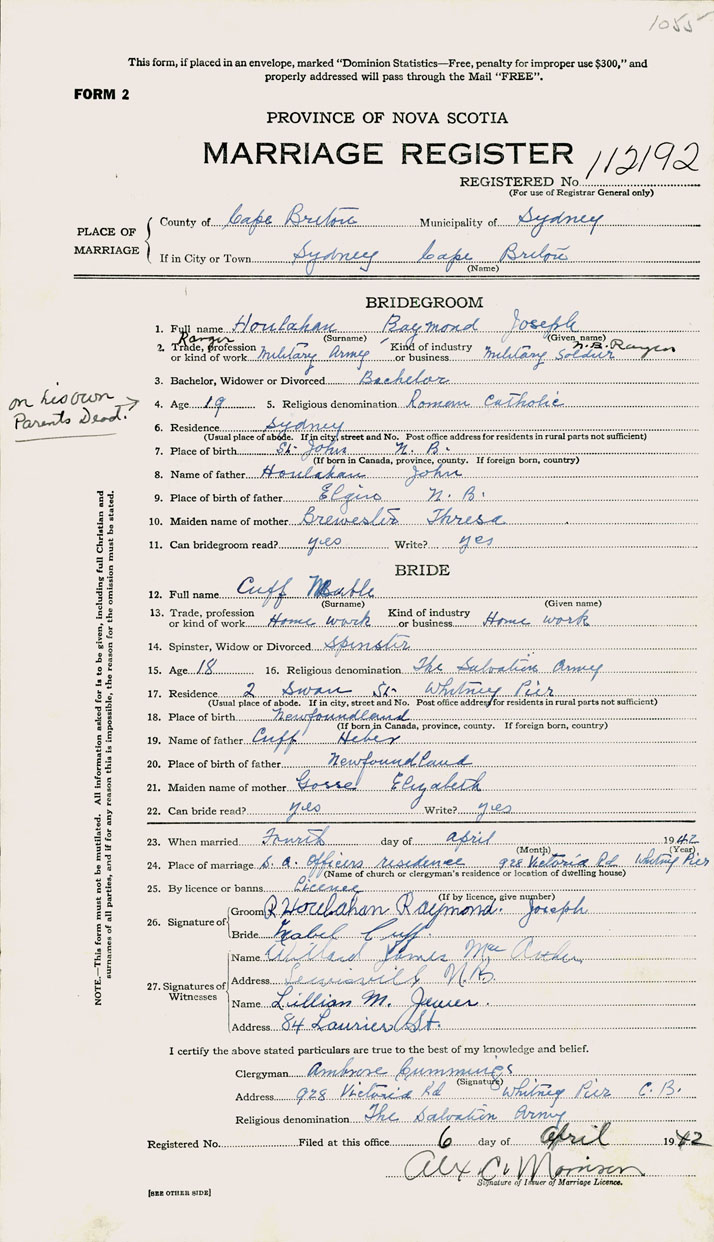 1055
This form, if placed in an envelope, marked "Dominion Statistics—Free, penalty for improper use $300," and
properly addressed will pass through the Mail "FREE".
FORM 2
PROVINCE OF NOVA SCOTIA
MARRIAGE REGISTER
REGISTERED No. 112192
(For use of Registrar General only)
PLACE OF MARRIAGE
County of Cape Breton Municipality of Sydney
If in City or Town Sydney Cape Breton
(Name)
BRIDEGROOM
1. Full name Houlahan Raymond Joseph
(Surname) (Given name)
Ranger N.B. Rangers
2. Trade, profession or kind of work Military Army Kind of industry or business Military Soldier
3. Bachelor, Widower or Divorced Bachelor
on his own Parents Dead.
4. Age 19 5. Religious denomination Roman Catholic
6. Residence Sydney
(Usual place of abode. If in city, street and No. Post office address for residents in rural parts not sufficient)
7. Place of birth St. John N. B.
(If born in Canada, province, county. If foreign born, country)
8. Name of father Houlahan John
9. Place of birth of father Elgin N. B.
10. Maiden name of mother Brewester Thresa
11. Can bridegroom read? yes Write? yes
BRIDE
12. Full name Cuff Mable
(Surname) (Given name)
13. Trade, profession or kind of work Home work Kind of industry or business Home work
14. Spinster, Widow or Divorced Spinster
15. Age 18 16. Religious denomination The Salvation Army
17. Residence 2 Swan St. Whitney Pier
(Usual place of abode. If in city, street and No. Post office address for residents in rural parts not sufficient)
18. Place of birth Newfoundland
(If born in Canada, province, county. If foreign born, country)
19. Name of father Cuff Heber
20. Place of birth of father Newfoundland
21. Maiden name of mother Gosse Elizabeth
22. Can bride read? yes Write? yes
23. When married Fourth day of April 1942
(Month) (Year)
24. Place of marriage S. A. Officers residence 928 Victoria Rd Whitney Pier
(Name of church or clergyman's residence or location of dwelling house)
25. By licence or banns Licence
(If by licence, give number)
26. Signature of
Groom R Houlahan Raymond. Joseph
Bride Mabel Cuff.
27. Signatures of Witnesses
Name Willard James Mac
Address Lewisville N.B.
Name Lillian M. Jewer.
Address 84 Laurier St.
I certify the above stated particulars are true to the best of my knowledge and belief.
Clergyman Ambrose Cummings
(Signature)
Address 928 Victoria Rd Whitney Pier C. B.
Religious denomination The Salvation Army
Registered No. Filed at this office 6 day of April 1942
Alex C. Morrison
Signature of Issuer of Marriage Licence.
[SEE OTHER SIDE]
NOTE.—This form must not be mutilated. All information asked for is to be given, including full Christian and
surnames of all parties, and if for any reason this is impossible, the reason for the omission must be stated.